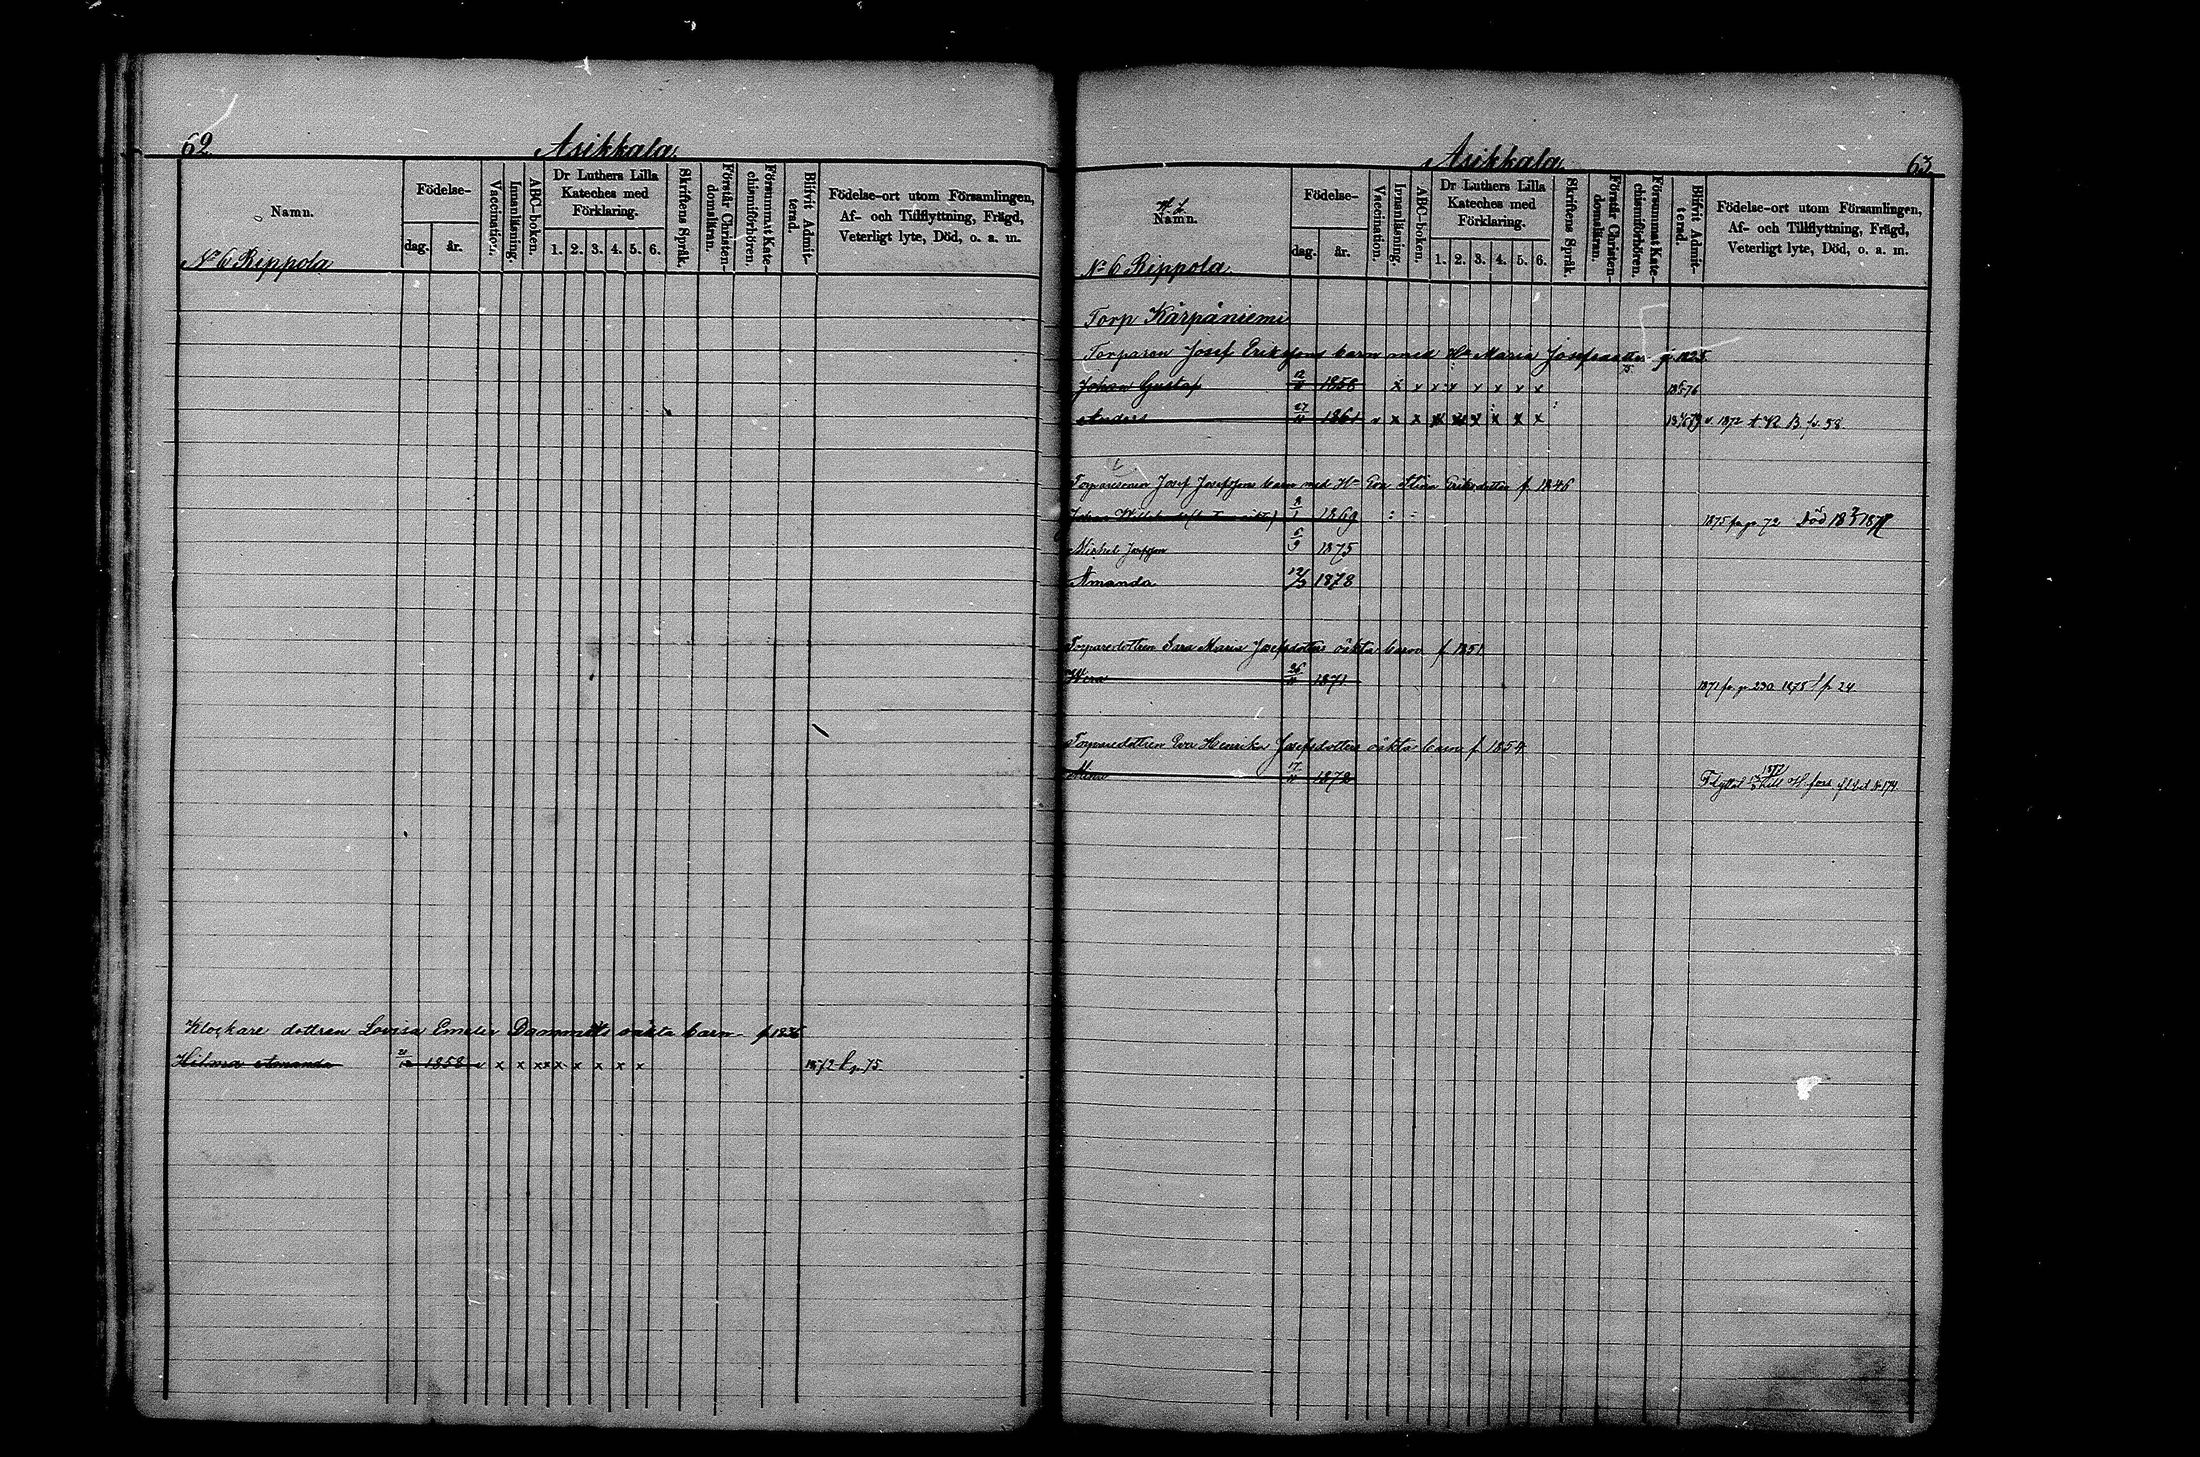 62.
Asikkala.
Namn.
Födelse-
dag. år.
Vaccination.
Innanläsning.
ABC-boken.
Dr Luthers Lilla
Kateches med
Förklaring.
1. 2. 3. 4. 5. 6.
Skriftens Språk.
Förstår Christen-
domsläran.
Försummat Kate-
chismiförhören.
Blifvit Admit-
terad.
Födelse-ort utom Församlingen,
Af- och Tillflyttning, Frägd,
Veterligt lyte, Död, o. a. m.
No 6 Rippola
Klockare dottren Lovisa Emelie Dammerts oäkta barn f 1836
Hilma Amanda 21/12 1858 v x x x x x x x x x 1872 p. 75
Asikkala.
63.
Namn.
Födelse-
dag. år.
Vaccination.
Innanläsning.
ABC-boken.
Dr Luthers Lilla
Kateches med
Förklaring.
1. 2. 3. 4. 5. 6.
Skriftens Språk
Förstår Christen-
domsläran.
Försummat Kate-
chismiförhören.
Blifvit Admit-
terad.
Födelse-ort utom Församlingen,
Af- och Tillflyttning, Frägd,
Veterligt lyte, Död, o. a. m.
No 6 Rippola.
Torp Kärpäniemi
Torparen Josef Erikssons barn med Hu Maria Josefsdotter f. 1825
Johan Gustaf 12/11 1858 x x x x x x x x
Anders 27/11 1861 v x x x x x x x x 1872 p. 58
Torparesonen Josef Josefssons barn med Hu Eva Stina Eriksdotter f 1846
Johan 8/1 1869 1875 fr p 72 Död
Michel Josefsson 6/9 1875
Amanda 12/3 1878
Torparedottren Sara Maria Josefsdotters oäkta barn f 1851
Wera 26/11 1871 1871 fr. p. 230 1875 t p 24
Torparedottren Eva Henrika Josefsdotters oäkta barn f 1854
17/11 1872 Flyttat till H:fors